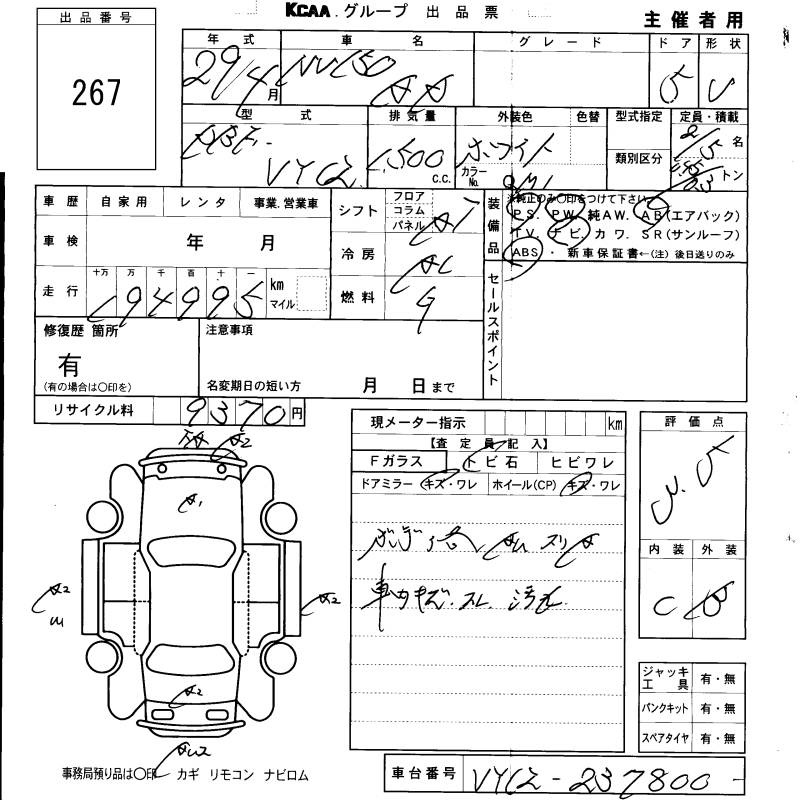 KCAA グループ 出品票
主催者用
出品番号
267
年式 車名 グレード ドア 形状
29/4月 NV150 AD 5 V
型式 排気量 外装色 色替 型式指定 定員・積載
DBF-VY12 1,500 C.C. ホワイト 類別区分 2/5名
カラーNo. QM1 トン
車歴 自家用 レンタ 事業.営業車
車検 年 月
走行 十万 万 千 百 十 一 km マイル
194995
シフト フロア コラム パネル AT
冷房 AC
燃料 G
装備品 ※純正のみ〇印をつけて下さい
P.S. P.W. 純AW. AB(エアバック)
TV. ナビ. カワ. SR(サンルーフ)
ABS・新車保証書←(注)後日送りのみ
セールスポイント
修復歴 箇所
有
(有の場合は〇印を)
注意事項
名変期日の短い方 月 日まで
リサイクル料 9370円
現メーター指示 km
【査定員記入】
Fガラス トビ石 ヒビワレ
ドアミラー キズ・ワレ ホイール(CP) キズ・ワレ
車内キズ.スレ.汚れ
評価点
3.5
内装 外装
C B
A2
A1
A2
A2
A2
ジャッキ工具 有・無
パンクキット 有・無
スペアタイヤ 有・無
事務局預り品は〇印 カギ リモコン ナビロム
車台番号 VY12-237800